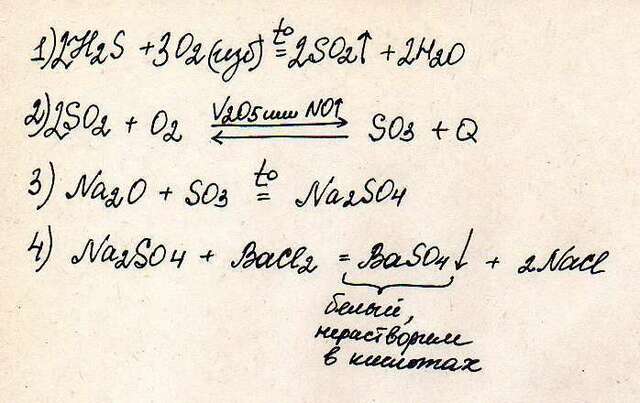 1) 2H2S + 3O2 (изб) t° = 2SO2↑ + 2H2O
2) 2SO2 + O2 V2O5 или NO↑ ⇄ SO3 + Q
3) Na2O + SO3 t° = Na2SO4
4) Na2SO4 + BaCl2 = BaSO4↓ + 2NaCl
белый,
нерастворим
в кислотах